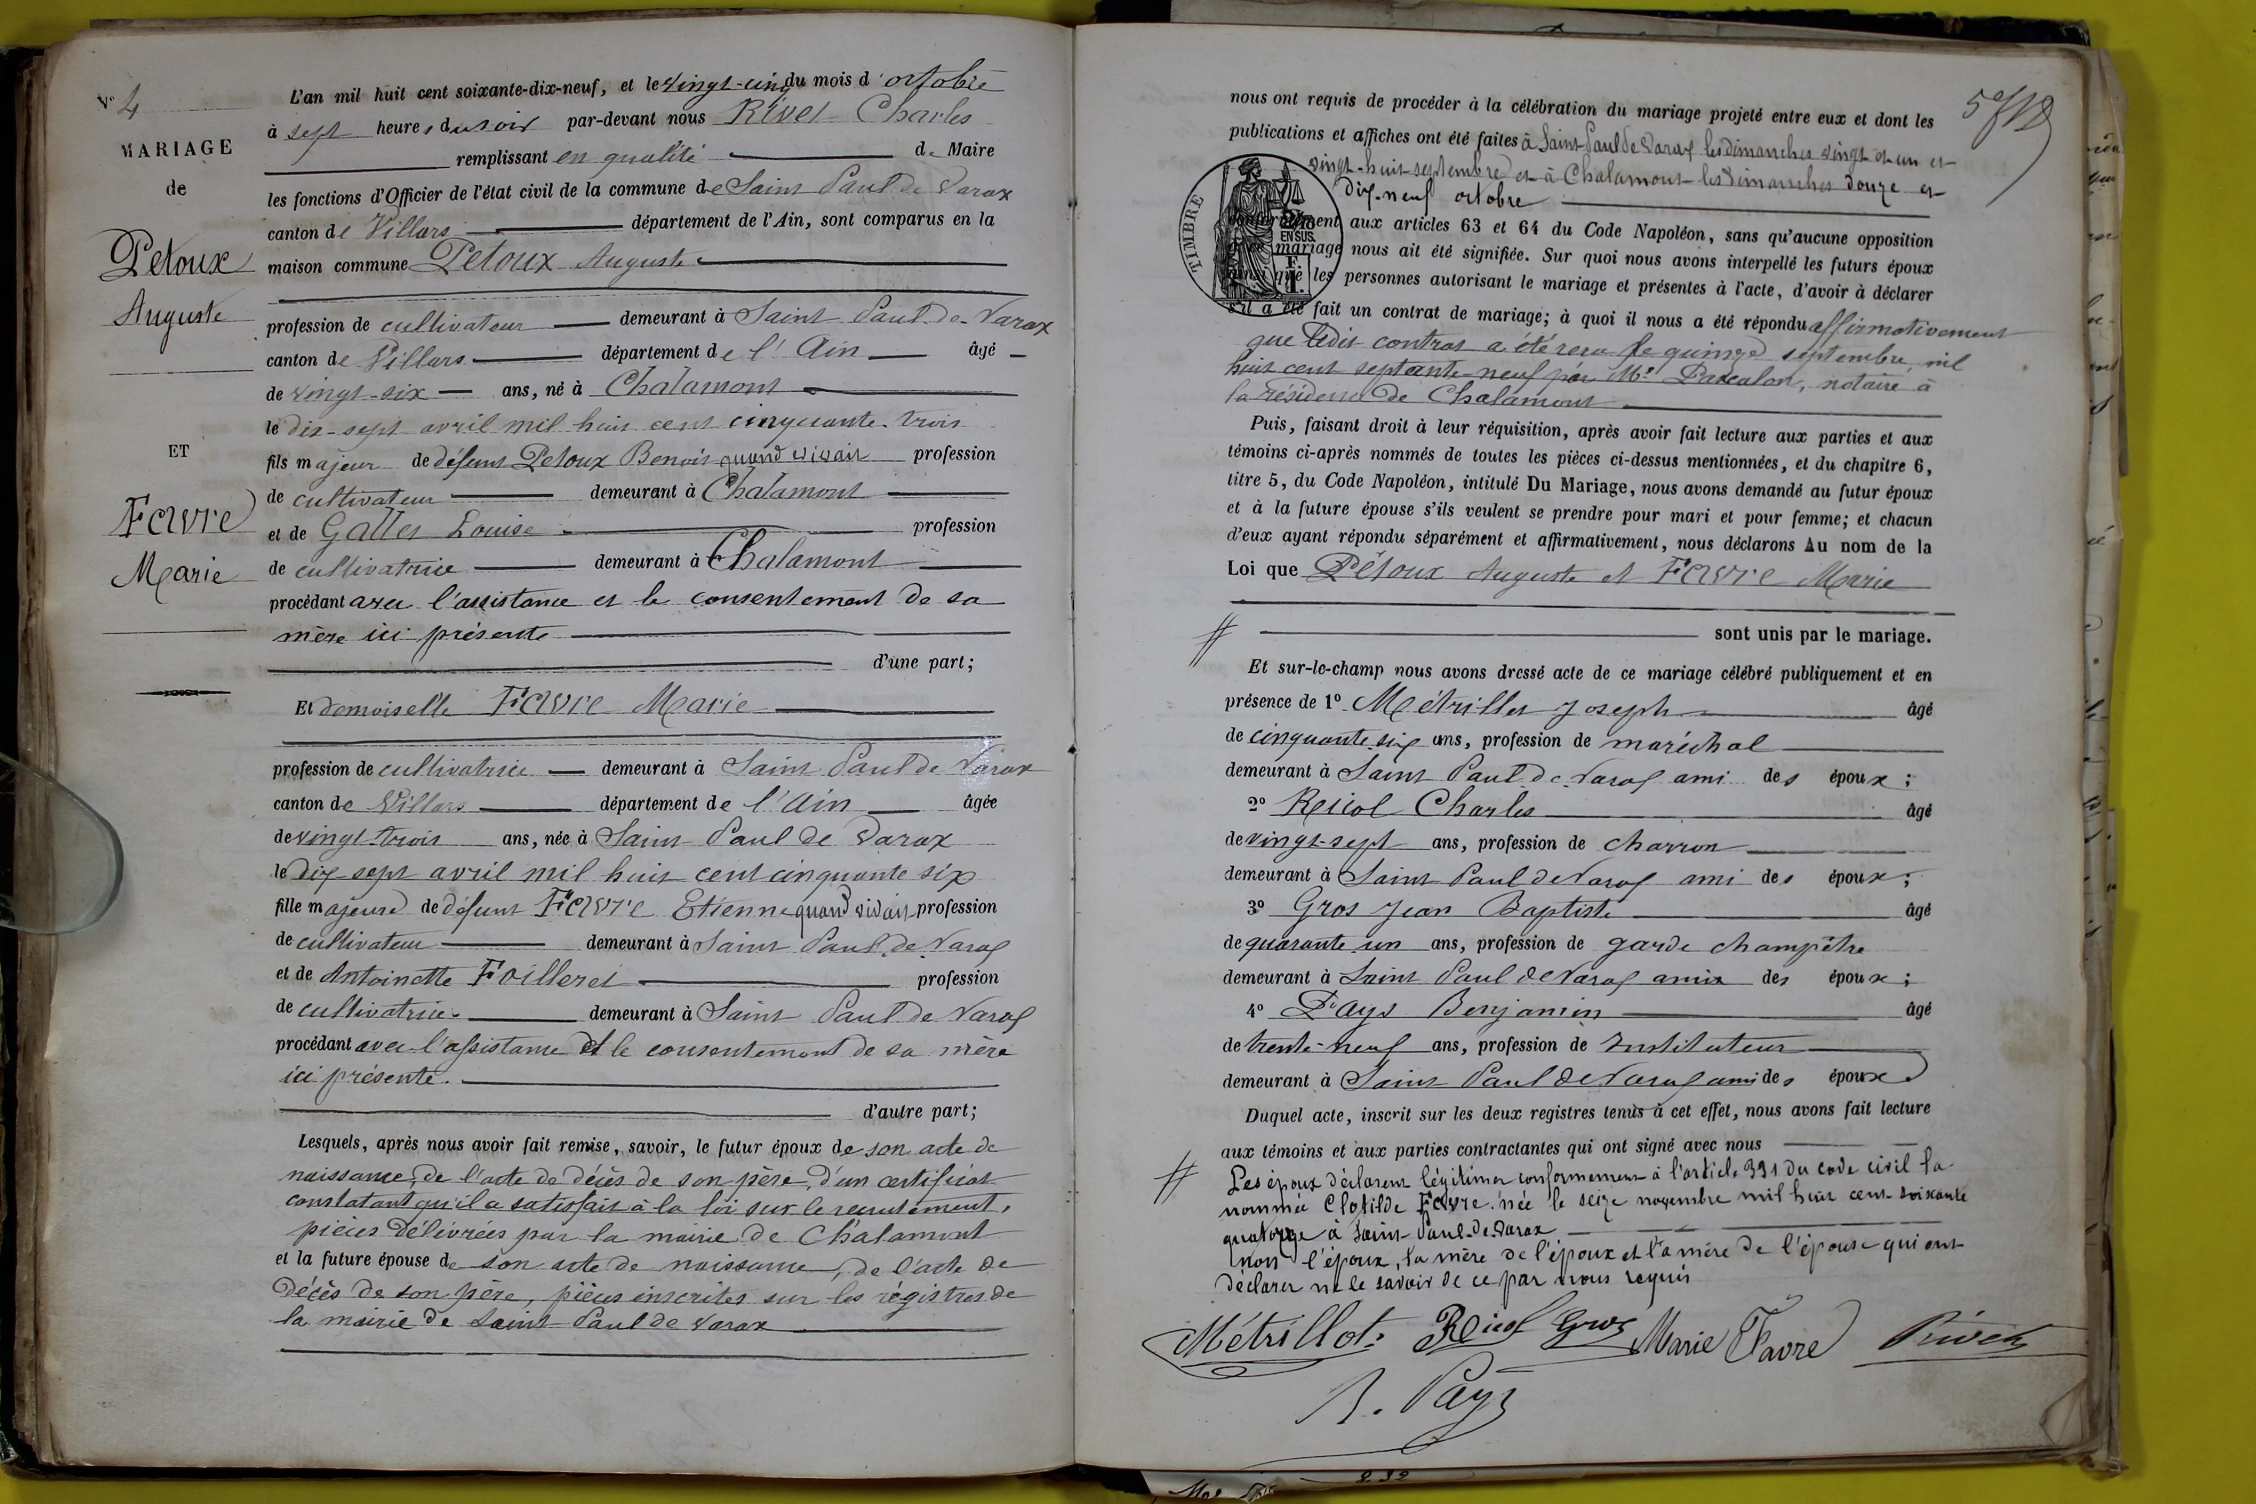 N° 4
MARIAGE
de
Petoux
Auguste
ET
Favre
Marie
L'an mil huit cent soixante-dix-neuf, et le vingt-cinq du mois d'octobre
à sept heures du soir par-devant nous Rivet Charles
remplissant en qualité de Maire
les fonctions d'Officier de l'état civil de la commune de Saint Paul de Varax
canton de Villars département de l'Ain, sont comparus en la
maison commune Petoux Auguste
profession de cultivateur demeurant à Saint Paul-de-Varax
canton de Villars département de l'Ain âgé
de vingt-six ans, né à Chalamont
le dix-sept avril mil huit cent cinquante-trois
fils majeur de défunt Petoux Benoit quand vivait profession
de cultivateur demeurant à Chalamont
et de Gallet Louise profession
de cultivatrice demeurant à Chalamont
procédant avec l'assistance et le consentement de sa
mère ici présente
d'une part;
Et demoiselle Favre Marie
profession de cultivatrice demeurant à Saint Paul de Varax
canton de Villars département de l'Ain âgée
de vingt-trois ans, née à Saint Paul de Varax
le dix-sept avril mil huit cent cinquante six
fille majeure de défunt Favre Etienne quand vivait profession
de cultivateur demeurant à Saint Paul de Varax
et de Antoinette Foilleret profession
de cultivatrice demeurant à Saint Paul de Varax
procédant avec l'assistance et le consentement de sa mère
ici présente.
d'autre part;
Lesquels, après nous avoir fait remise, savoir, le futur époux de son acte de
naissance, de l'acte de décès de son père, d'un certificat
constatant qu'il a satisfait à la loi sur le recrutement,
pièces délivrées par la mairie de Chalamont
et la future épouse de son acte de naissance, de l'acte de
décès de son père, pièces inscrites sur les régistres de
la mairie de Saint-Paul de Varax
nous ont requis de procéder à la célébration du mariage projeté entre eux et dont les
publications et affiches ont été faites à Saint Paul de Varax les dimanches vingt et un et
vingt-huit septembre et à Chalamont les dimanches douze et
dix-neuf octobre
TIMBRE
EN SUS
conformément aux articles 63 et 64 du Code Napoléon, sans qu'aucune opposition
mariage nous ait été signifiée. Sur quoi nous avons interpellé les futurs époux
ainsi que les personnes autorisant le mariage et présentes à l'acte, d'avoir à déclarer
s'il a été fait un contrat de mariage; à quoi il nous a été répondu affirmativement
que ledit contrat a été reçu le quinze septembre mil
huit cent septante-neuf par Me Pascalon, notaire à
la résidence de Chalamont
Puis, faisant droit à leur réquisition, après avoir fait lecture aux parties et aux
témoins ci-après nommés de toutes les pièces ci-dessus mentionnées, et du chapitre 6,
titre 5, du Code Napoléon, intitulé Du Mariage, nous avons demandé au futur époux
et à la future épouse s'ils veulent se prendre pour mari et pour femme; et chacun
d'eux ayant répondu séparément et affirmativement, nous déclarons Au nom de la
Loi que Pétoux Auguste et Favre Marie
sont unis par le mariage.
Et sur-le-champ nous avons dressé acte de ce mariage célébré publiquement et en
présence de 1° Métrillot Joseph âgé
de cinquante-six ans, profession de maréchal
demeurant à Saint Paul de Varax ami des époux;
2° Ricol Charles âgé
de vingt-sept ans, profession de charron
demeurant à Saint Paul de Varax ami des époux;
3° Gros Jean Baptiste âgé
de quarante-un ans, profession de garde champêtre
demeurant à Saint Paul de Varax amis des époux;
4° Pays Benjamin âgé
de trente-neuf ans, profession de Instituteur
demeurant à Saint Paul de Varax ami des époux
Duquel acte, inscrit sur les deux registres tenus à cet effet, nous avons fait lecture
aux témoins et aux parties contractantes qui ont signé avec nous
Les époux déclarent légitimer conformement à l'article 331 du code civil la
nommée Clotilde Favre née le seize novembre mil huit cent soixante
quatorze à Saint-Paul-de-Varax
non l'époux, la mère de l'époux et la mère de l'épouse qui ont
déclarer ne le savoir de ce par nous requis
Métrillot Ricol Gros Marie Favre Rivet
B. Pays